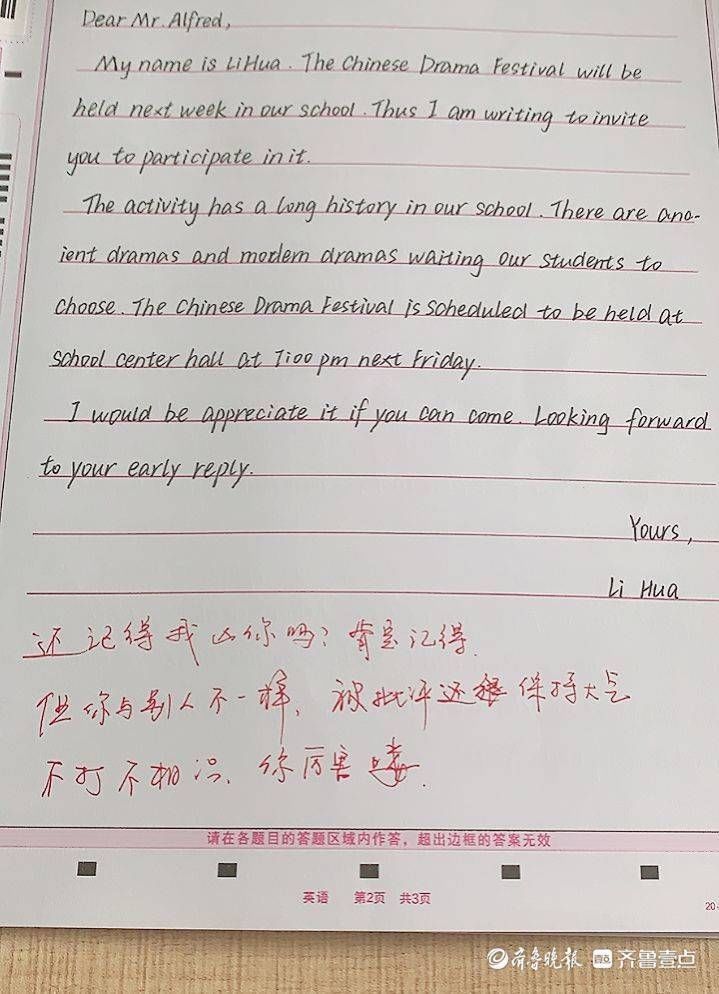 Dear Mr. Alfred,
My name is LiHua. The Chinese Drama Festival will be
held next week in our school. Thus I am writing to invite
you to participate in it.
The activity has a long history in our school. There are anc-
ient dramas and modern dramas waiting our students to
choose. The Chinese Drama Festival is scheduled to be held at
school center hall at 7:00 pm next Friday.
I would be appreciate it if you can come. Looking forward
to your early reply.
Yours,
Li Hua
还记得我凶你吗?肯定记得.
但你与别人不一样,被批评还保持大气
不打不相识、你厉害喽.
请在各题目的答题区域内作答,超出边框的答案无效
英语 第2页 共3页
20-
齐鲁晚报 齐鲁壹点